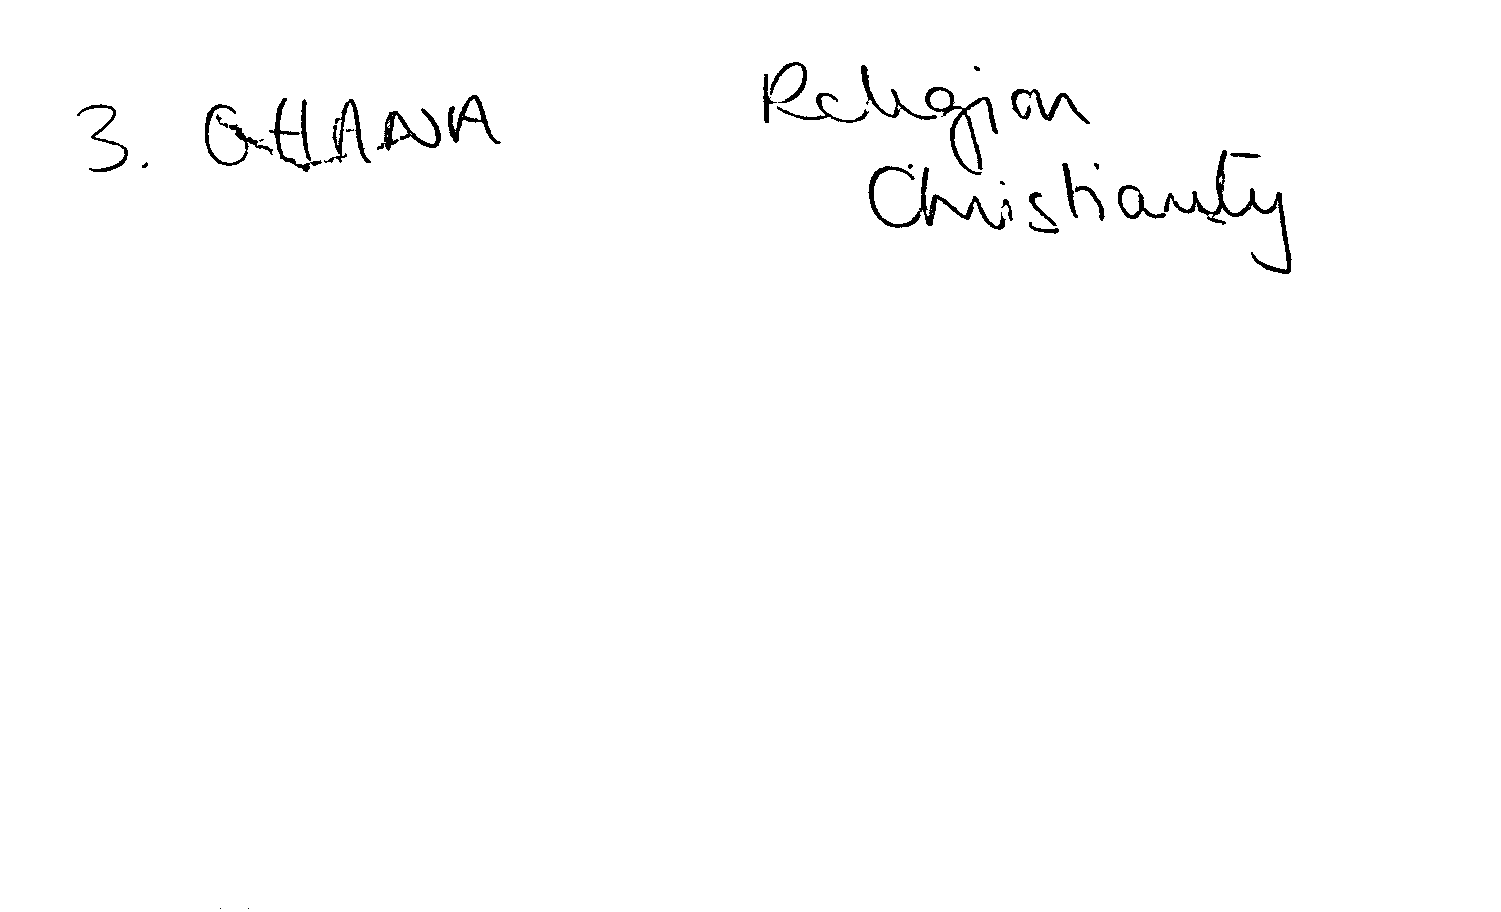 3. GHANA
Religion
Christianity